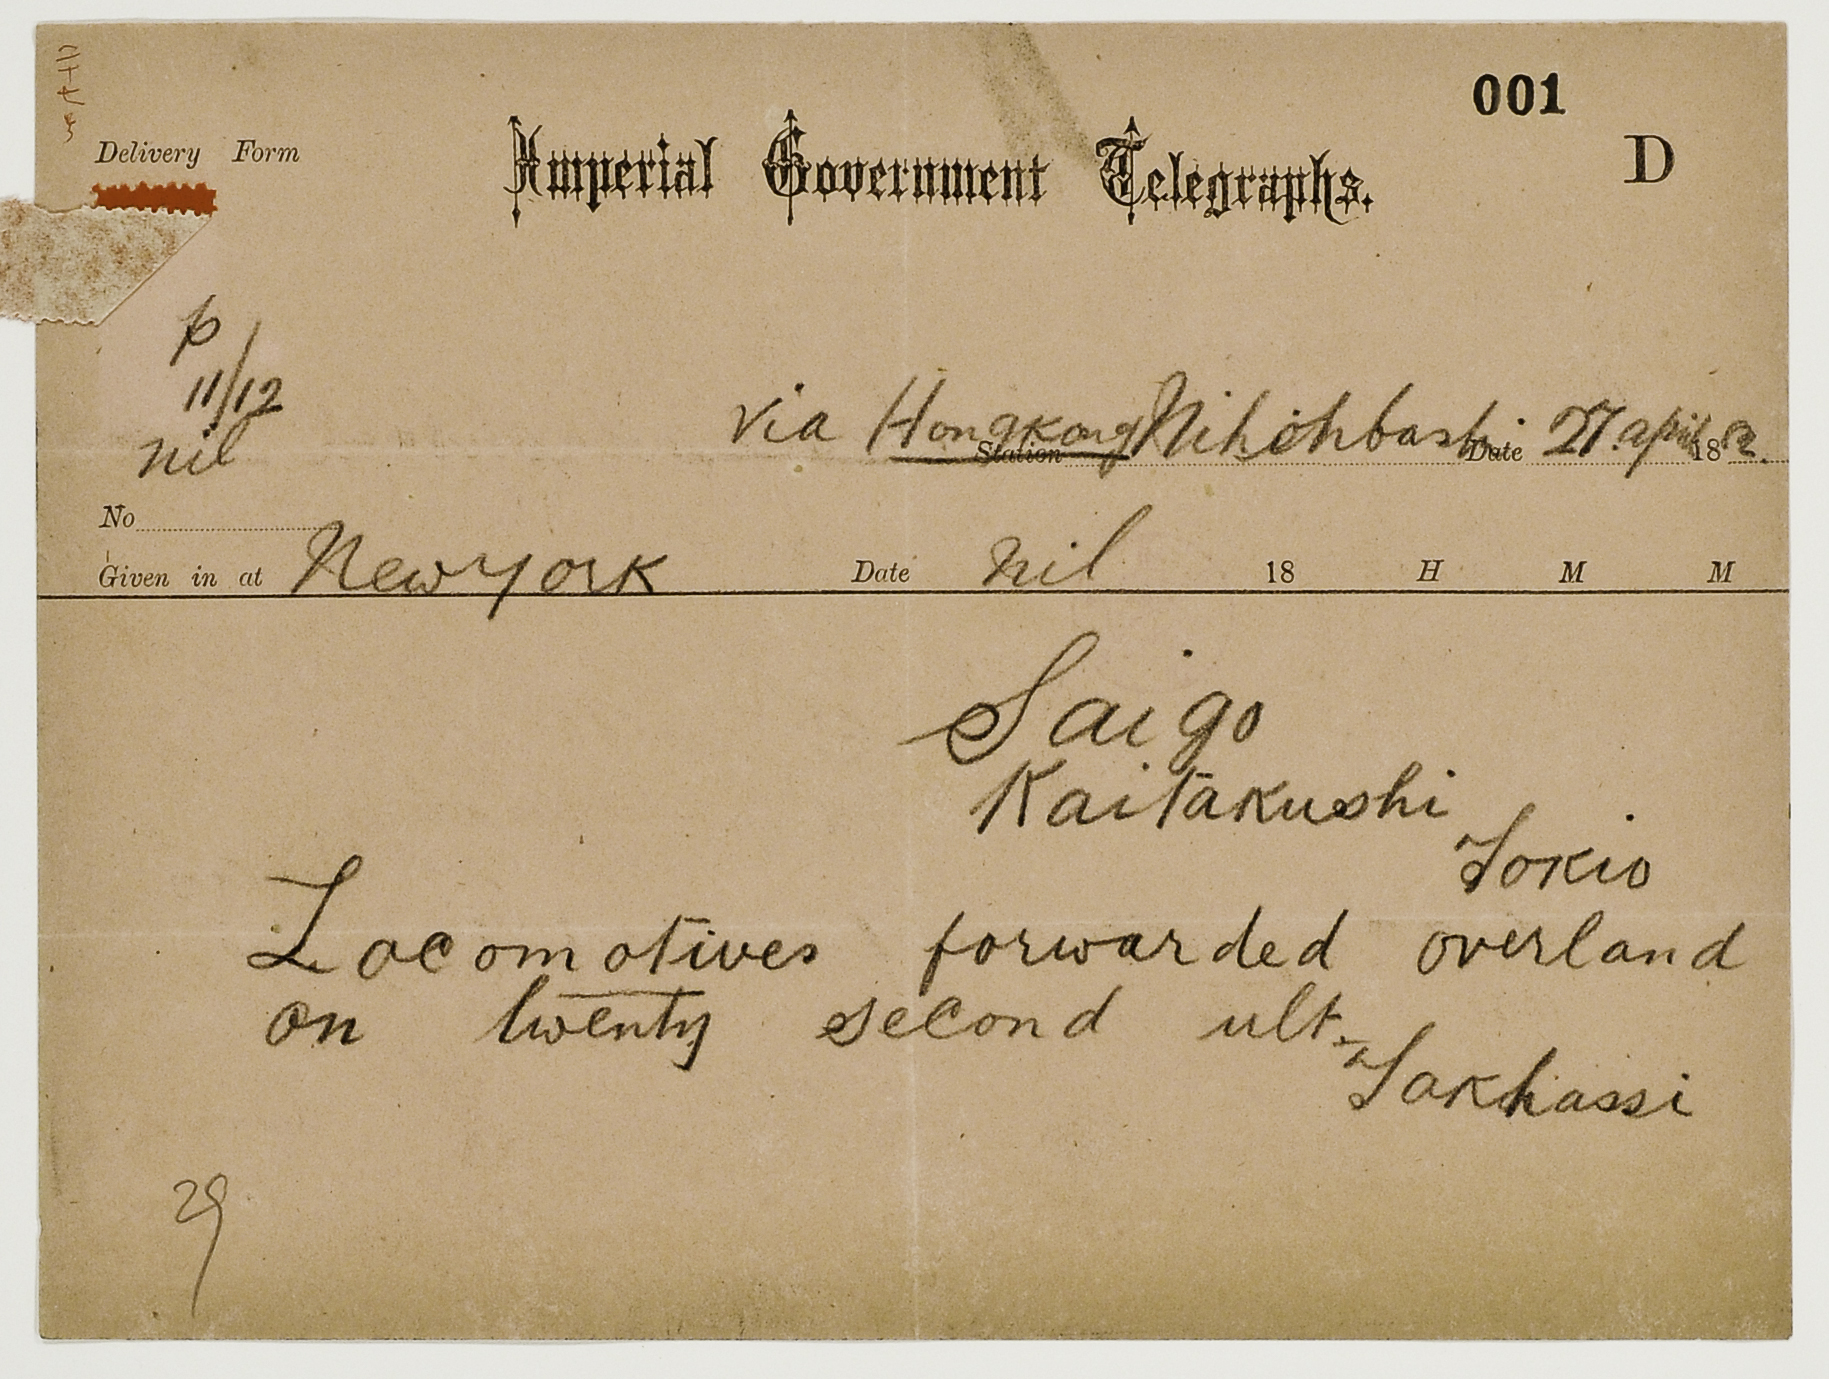 001
Delivery Form
Imperial Government Telegraphs.
D
p
11/12
nil
via Hongkong Nihonbashi 27 april 1882.
Station Date
No
Given in at New york Date nil 18 H M M
Saigo
Kaitakushi
Tokio
Locomotives forwarded overland
on twenty second ult.
Takhassi
29